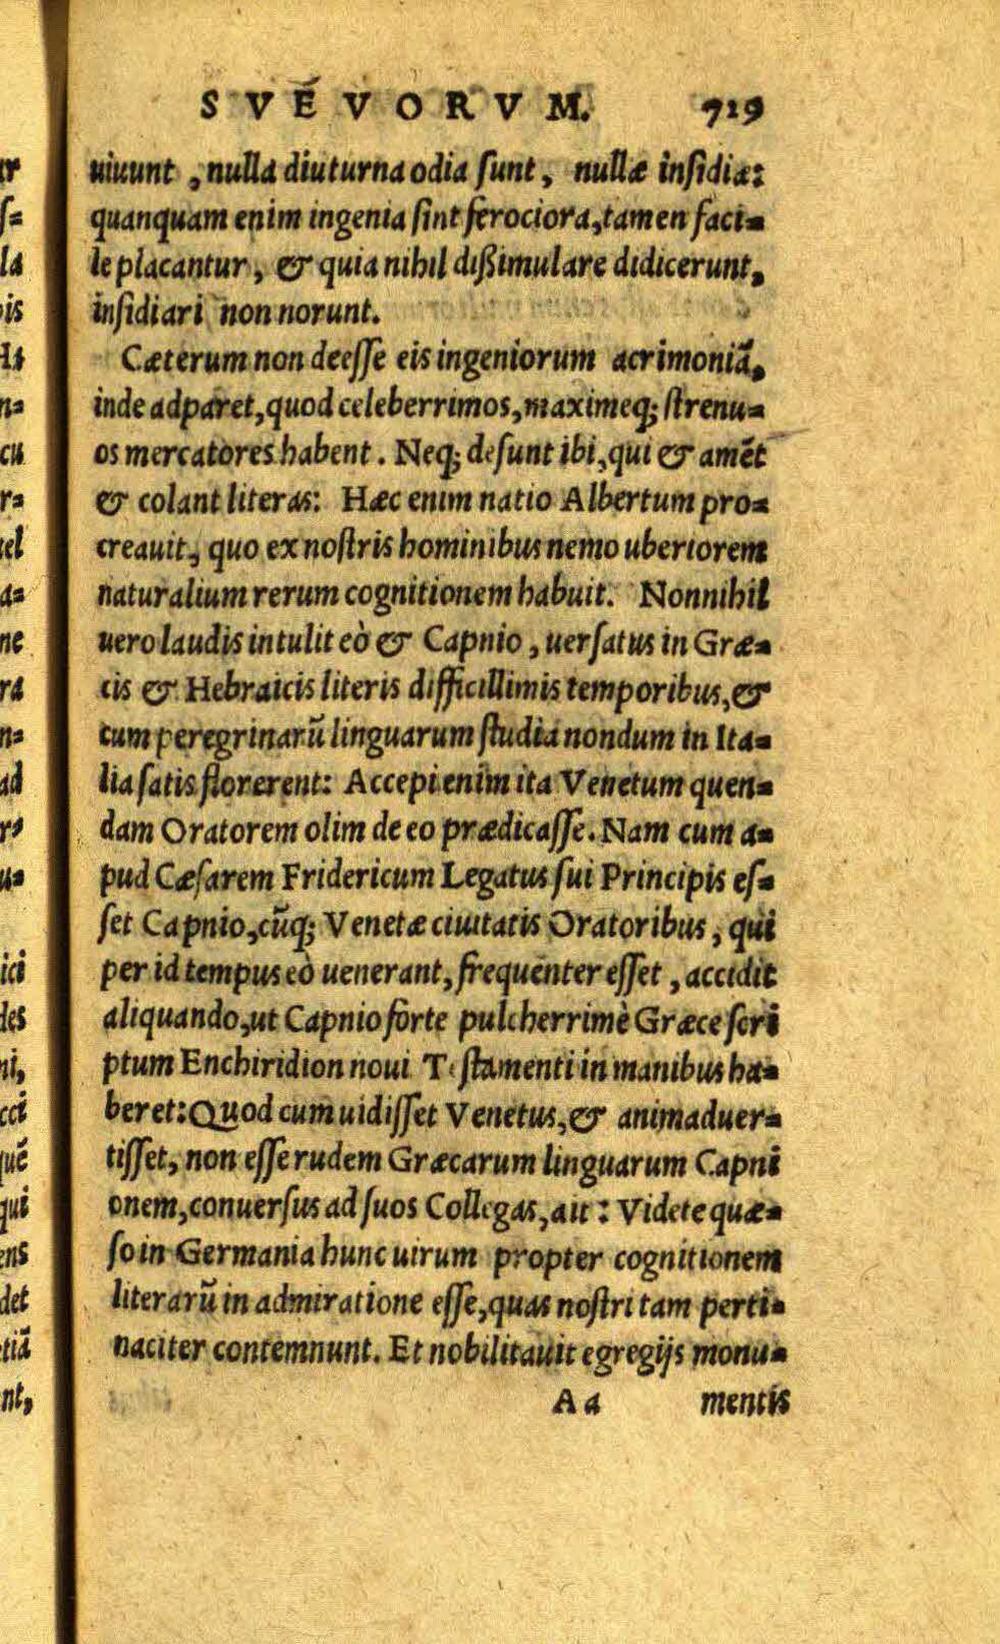 SVEVORVM. 719
uiuunt, nulla diuturna odia sunt, nullæ insidiæ:
quanquam enim ingenia sint ferociora, tamen faci-
le placantur, & quia nihil dißimulare didicerunt,
insidiari non norunt.
Cæterum non deesse eis ingeniorum acrimoniã,
inde adparet, quod celeberrimos, maximeq; strenu-
os mercatores habent. Neq; desunt ibi, qui & amẽt
& colant literas: Hæc enim natio Albertum pro-
creauit, quo ex nostris hominibus nemo uberiorem
naturalium rerum cognitionem habuit. Nonnihil
uero laudis intulit eò & Capnio, uersatus in Græ-
cis & Hebraicis literis difficillimis temporibus, &
cum peregrinarũ linguarum studia nondum in Ita-
lia satis florerent: Accepi enim ita Venetum quen-
dam Oratorem olim de eo prædicasse. Nam cum a-
pud Cæsarem Fridericum Legatus sui Principis es-
set Capnio, cũq; Venetæ ciuitatis Oratoribus, qui
per id tempus eò uenerant, frequenter esset, accidit
aliquando, ut Capnio forte pulcherrimè Græce scri
ptum Enchiridion noui Testamenti in manibus ha-
beret: Quod cum uidisset Venetus, & animaduer-
tisset, non esse rudem Græcarum linguarum Capni
onem, conuersus ad suos Collegas, ait: Videte quæ-
so in Germania hunc uirum propter cognitionem
literarũ in admiratione esse, quas nostri tam perti-
naciter contemnunt. Et nobilitauit egregijs monu-
Aa mentis